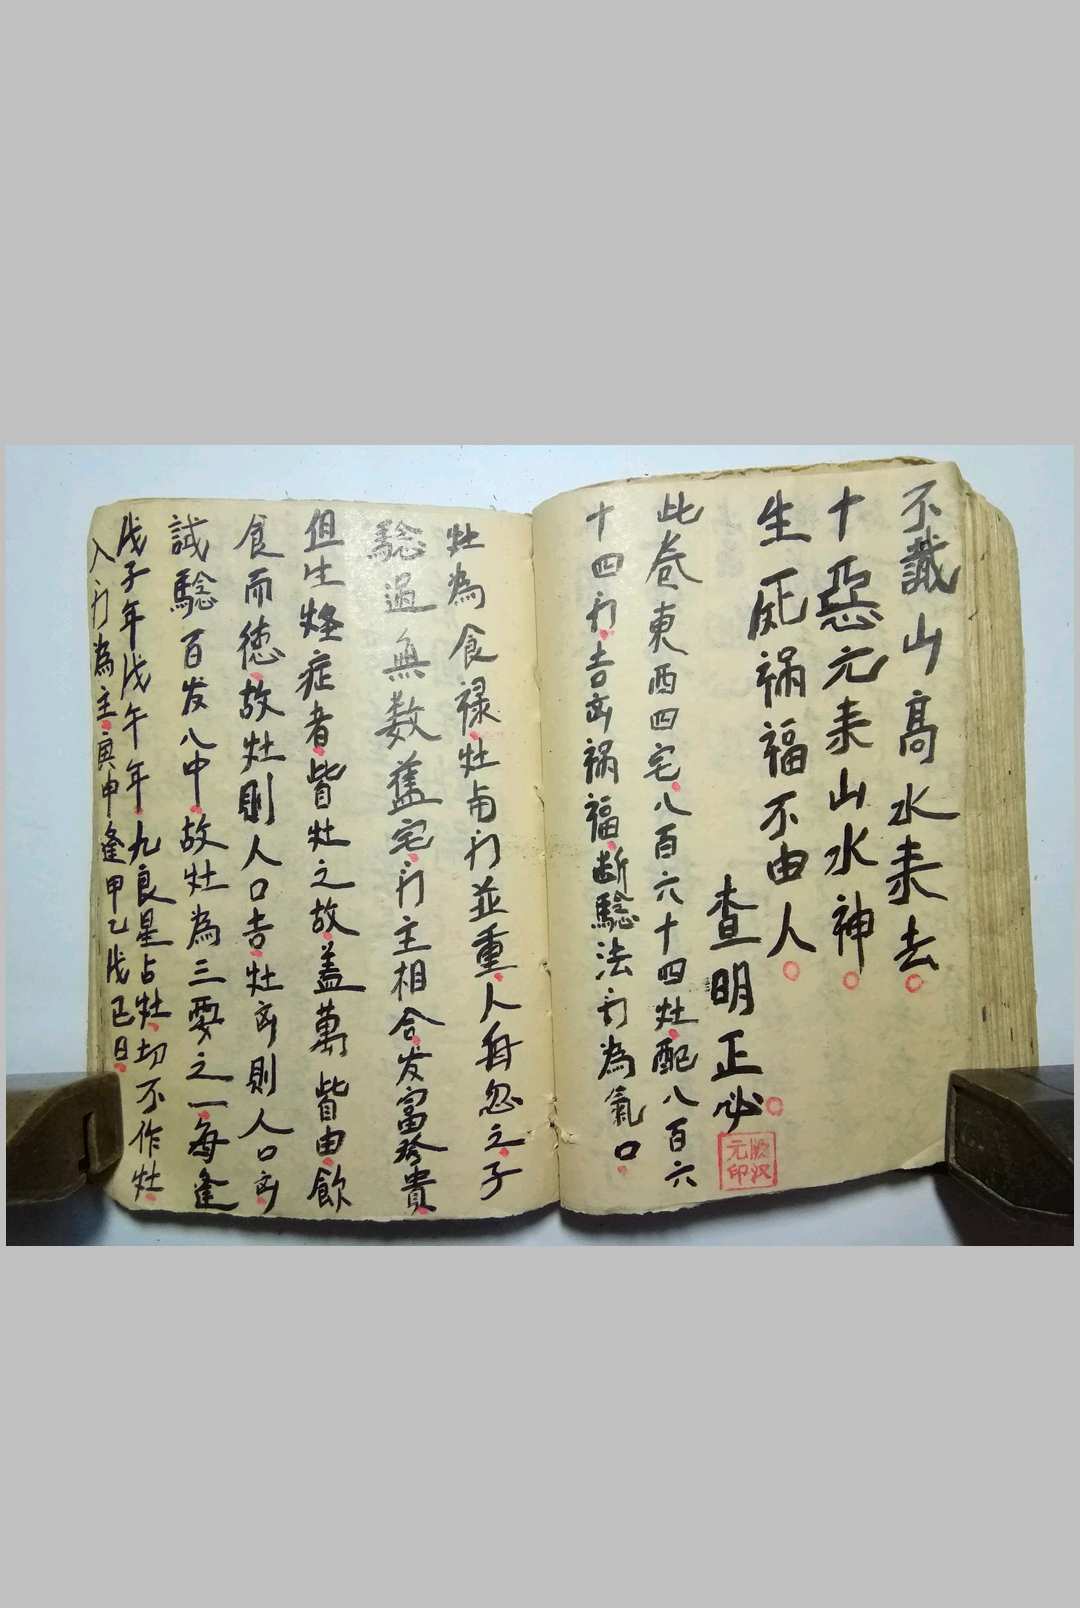 不識山高水耒去
十惡元耒山水神
生死禍福不由人
查明正必
元印
此卷東西四宅八百六十四灶配八百六
十四门吉凶禍福断驗法门為氣口
灶為食禄灶與门並重人每忽之子
驗過無数舊宅门主相合发富發貴
但生怪症者皆灶之故蓋萬皆由飲
食而徳故灶則人口吉灶凶則人口凶
試驗百发八中故灶為三要之一每逢
戊子年戊午年九良星占灶切不作灶
入门為主寅申逢甲乙戊己日